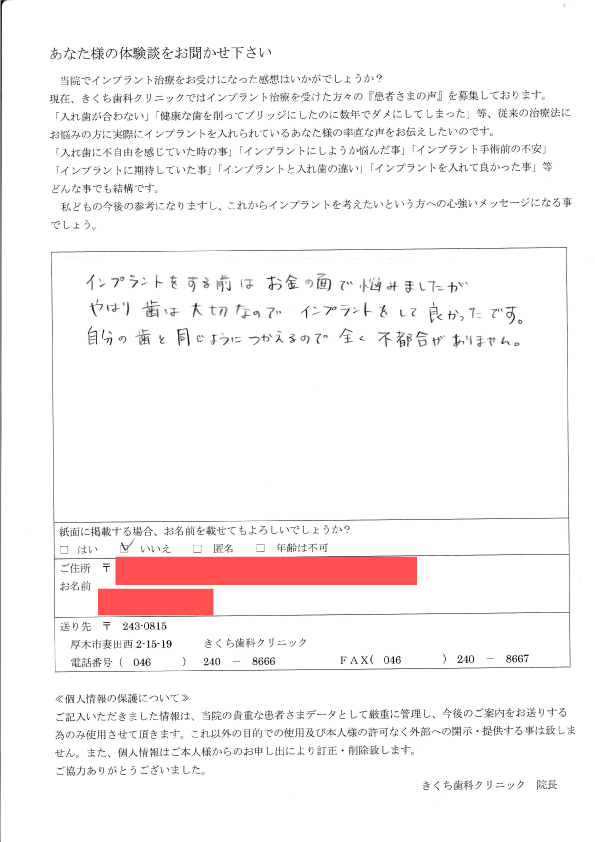 あなた様の体験談をお聞かせ下さい
当院でインプラント治療をお受けになった感想はいかがでしょうか？
現在、きくち歯科クリニックではインプラント治療を受けた方々の『患者さまの声』を募集しております。
「入れ歯が合わない」「健康な歯を削ってブリッジにしたのに数年でダメにしてしまった」等、従来の治療法に
お悩みの方に実際にインプラントを入れられているあなた様の率直な声をお伝えしたいのです。
「入れ歯に不自由を感じていた時の事」「インプラントにしようか悩んだ事」「インプラント手術前の不安」
「インプラントに期待していた事」「インプラントと入れ歯の違い」「インプラントを入れて良かった事」等
どんな事でも結構です。
私どもの今後の参考になりますし、これからインプラントを考えたいという方への心強いメッセージになる事
でしょう。
インプラントをする前は お金の面で悩みましたが
やはり 歯は 大切なので インプラントをして 良かったです。
自分の歯と 同じようにつかえるので 全く 不都合がありません。
紙面に掲載する場合、お名前を載せてもよろしいでしょうか？
□ はい ☑ いいえ □ 匿名 □ 年齢は不可
ご住所 〒
お名前
送り先 〒 243-0815
厚木市妻田西 2-15-19 きくち歯科クリニック
電話番号（ 046 ） 240 － 8666 ＦＡＸ( 046 ) 240 － 8667
≪個人情報の保護について≫
ご記入いただきました情報は、当院の貴重な患者さまデータとして厳重に管理し、今後のご案内をお送りする
為のみ使用させて頂きます。これ以外の目的での使用及び本人様の許可なく外部への開示・提供する事は致しま
せん。また、個人情報はご本人様からのお申し出により訂正・削除致します。
ご協力ありがとうございました。
きくち歯科クリニック 院長